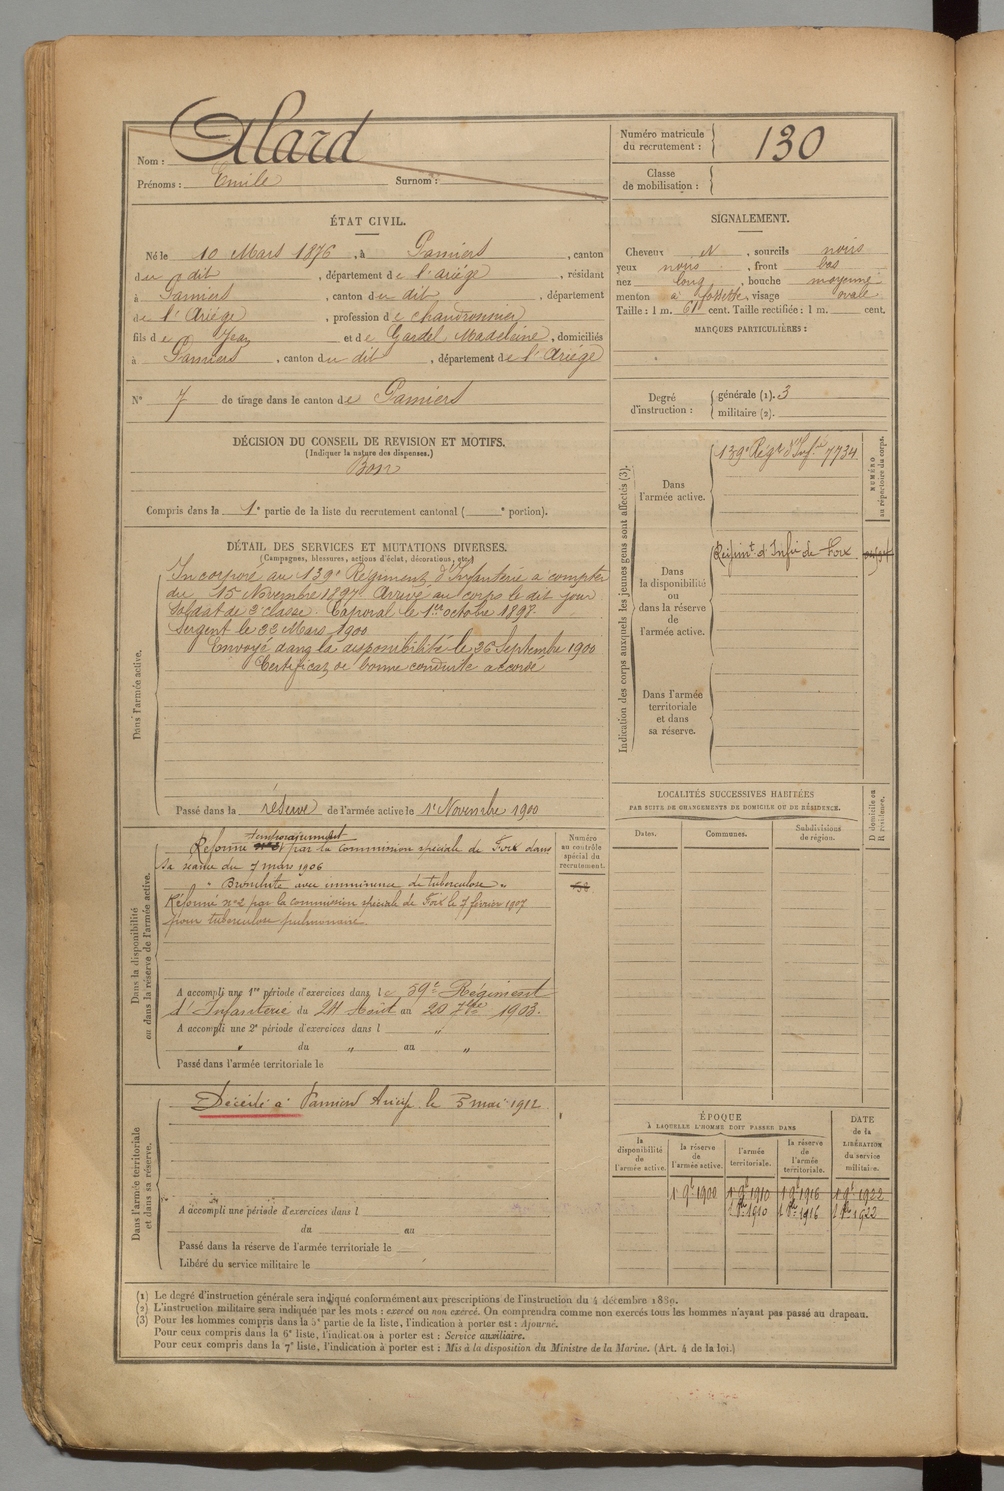 Nom : Alard
Prénoms : Emile Surnom :
Numéro matricule du recrutement : 130
Classe de mobilisation :
ÉTAT CIVIL.
Né le 10 Mars 1876, à Pamiers, canton
du dit, département de l'ariège, résidant
à Pamiers, canton du dit, département
de l'Ariège, profession de chaudronnier
fils de Jean et de Gardel Madeleine, domiciliés
à Pamiers, canton du dit, département de l'Ariége
N° 7 de tirage dans le canton de Pamiers
SIGNALEMENT.
Cheveux N, sourcils noirs
yeux noirs, front bas
nez long, bouche moyenne
menton à fossette, visage ovale
Taille : 1 m. 61 cent. Taille rectifiée : 1 m. cent.
MARQUES PARTICULIÈRES :
Degré d'instruction : générale (1). 3
militaire (2).
DÉCISION DU CONSEIL DE REVISION ET MOTIFS.
(Indiquer la nature des dispenses.)
Bon
Compris dans la 1e partie de la liste du recrutement cantonal ( e portion).
DÉTAIL DES SERVICES ET MUTATIONS DIVERSES.
(Campagnes, blessures, actions d'éclat, décorations, etc.)
Dans l'armée active.
Incorporé au 139e Régiment d'Infanterie à compter
du 15 Novembre 1897. Arrivé au corps le dit jour
Soldat de 2e classe. Caporal le 1er octobre 1898.
Sergent le 22 Mars 1900
Envoyé dans la disponibilité le 26 Septembre 1900
Certificat de bonne conduite accordé
Passé dans la réserve de l'armée active le 1er Novembre 1900
Indication des corps auxquels les jeunes gens sont affectés (3).
NUMÉRO au répertoire du corps.
Dans l'armée active.
139e Régt d'Inf.ie 7734
Dans la disponibilité ou dans la réserve de l'armée active.
Régimt d'Infie de Foix
Dans l'armée territoriale et dans sa réserve.
LOCALITÉS SUCCESSIVES HABITÉES
PAR SUITE DE CHANGEMENTS DE DOMICILE OU DE RÉSIDENCE.
Dates. Communes. Subdivisions de région.
D domicile ou R résidence.
Dans la disponibilité ou dans la réserve de l'armée active.
Numéro au contrôle spécial du recrutement.
temporairement
Réformé par la commission spéciale de Foix dans
sa séance du 7 mars 1906
" Bronchite avec imminence de tuberculose "
Réformé n°2 par la commission spéciale de Foix le 7 février 1907
pour tuberculose pulmonaire.
A accompli une 1re période d'exercices dans le 59e Régiment
d'Infanterie du 24 Août au 20 7bre 1903.
A accompli une 2e période d'exercices dans l "
" du " au "
Passé dans l'armée territoriale le
Dans l'armée territoriale et dans sa réserve.
Décédé à Pamiers Ariège le 5 mai 1912
A accompli une période d'exercices dans l
du au
Passé dans la réserve de l'armée territoriale le
Libéré du service militaire le
ÉPOQUE
À LAQUELLE L'HOMME DOIT PASSER DANS
la disponibilité de l'armée active.
la réserve de l'armée active.
l'armée territoriale.
la réserve de l'armée territoriale.
DATE de la LIBÉRATION du service militaire.
1er 9bre 1900 1er 9bre 1910 1er 9bre 1916 1er 9bre 1922
1 8bre 1910 1 8bre 1916 1 8bre 1922
(1) Le degré d'instruction générale sera indiqué conformément aux prescriptions de l'instruction du 4 décembre 1889.
(2) L'instruction militaire sera indiquée par les mots : exercé ou non exercé. On comprendra comme non exercés tous les hommes n'ayant pas passé au drapeau.
(3) Pour les hommes compris dans la 5e partie de la liste, l'indication à porter est : Ajourné.
Pour ceux compris dans la 6e liste, l'indication à porter est : Service auxiliaire.
Pour ceux compris dans la 7e liste, l'indication à porter est : Mis à la disposition du Ministre de la Marine. (Art. 4 de la loi.)